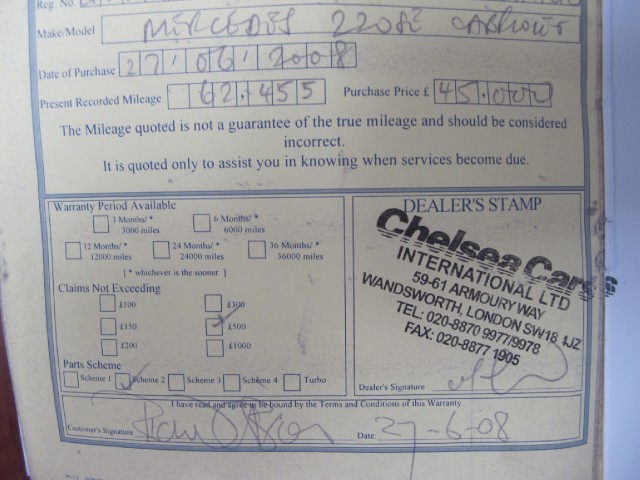 Reg. No.
Make/Model MERCEDES 220SE CABRIOLET
Date of Purchase 27 06 2008
Present Recorded Mileage 62.455 Purchase Price £ 45.000
The Mileage quoted is not a guarantee of the true mileage and should be considered
incorrect.
It is quoted only to assist you in knowing when services become due.
Warranty Period Available
3 Months/ *
3000 miles
6 Months/ *
6000 miles
12 Months/ *
12000 miles
24 Months/ *
24000 miles
36 Months/ *
36000 miles
[ * whichever is the sooner. ]
Claims Not Exceeding
£100 £300
£150 £500
£200 £1000
Parts Scheme
Scheme 1 Scheme 2 Scheme 3 Scheme 4 Turbo
DEALER'S STAMP
Chelsea Cars
INTERNATIONAL LTD
59-61 ARMOURY WAY
WANDSWORTH, LONDON SW18 1JZ
TEL: 020-8870 9977/9978
FAX: 020-8877 1905
Dealer's Signature
I have read and agree to be bound by the Terms and Conditions of this Warranty
Customer's Signature Date: 27-6-08